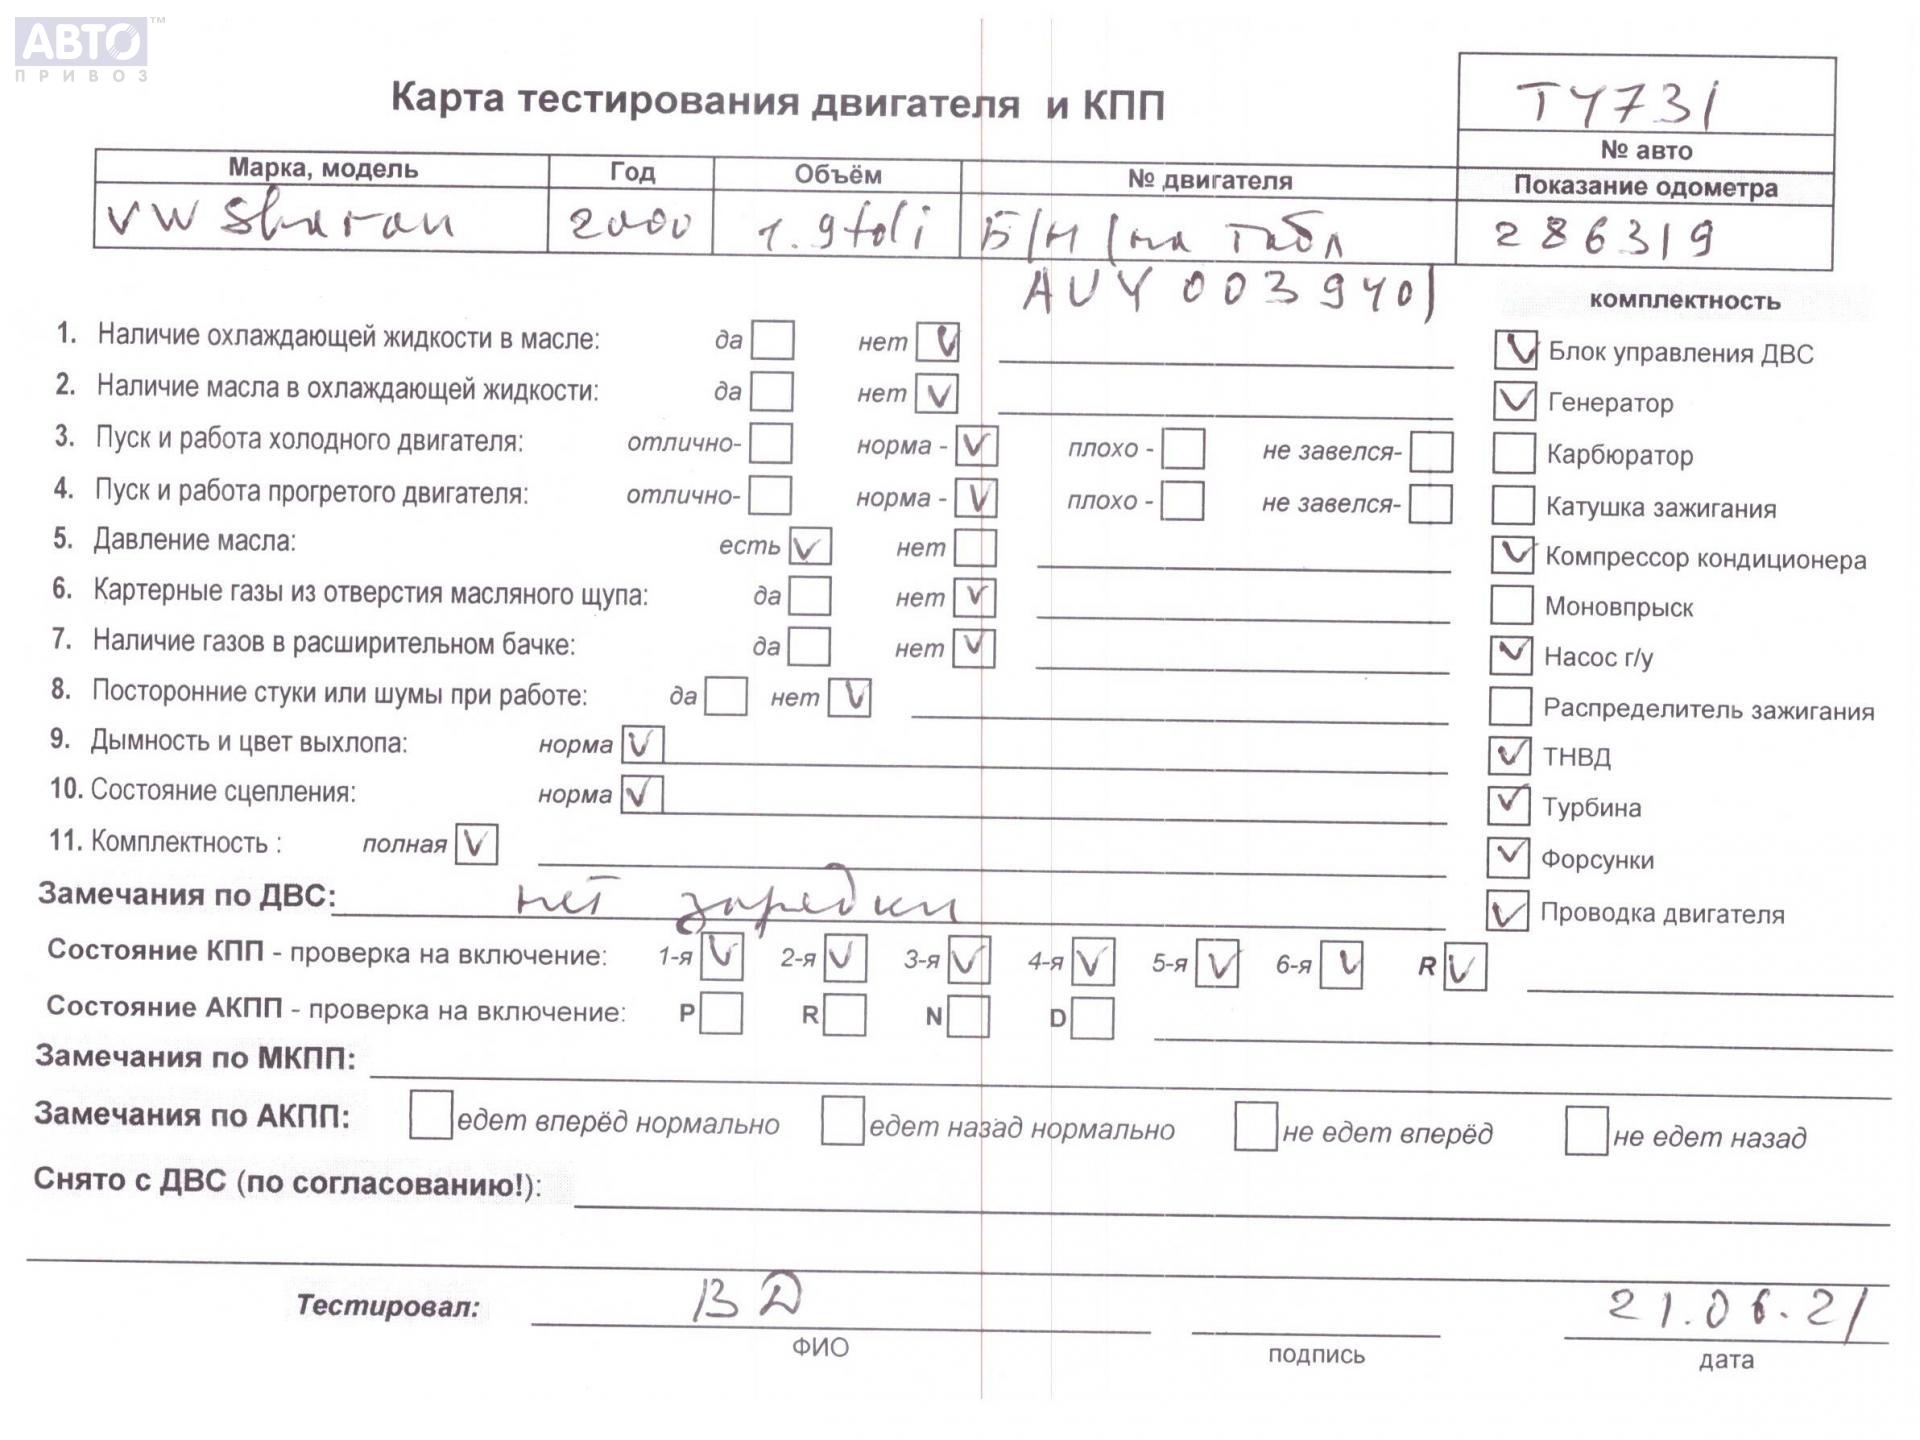 АВТО™
ПРИВОЗ
Карта тестирования двигателя и КПП
TY731
№ авто
Марка, модель Год Объём № двигателя Показание одометра
VW Sharan 2000 1.9 tdi Б/Н (на табл 286319
AUY 003940)
комплектность
1. Наличие охлаждающей жидкости в масле: да нет V
V Блок управления ДВС
2. Наличие масла в охлаждающей жидкости: да нет V
V Генератор
3. Пуск и работа холодного двигателя: отлично- норма - V плохо - не завелся-
Карбюратор
4. Пуск и работа прогретого двигателя: отлично- норма - V плохо - не завелся-
Катушка зажигания
5. Давление масла: есть V нет
V Компрессор кондиционера
6. Картерные газы из отверстия масляного щупа: да нет V
Моновпрыск
7. Наличие газов в расширительном бачке: да нет V
V Насос г/у
8. Посторонние стуки или шумы при работе: да нет V
Распределитель зажигания
9. Дымность и цвет выхлопа: норма V
V ТНВД
10. Состояние сцепления: норма V
V Турбина
11. Комплектность : полная V
V Форсунки
Замечания по ДВС: нет зарядки
V Проводка двигателя
Состояние КПП - проверка на включение: 1-я V 2-я V 3-я V 4-я V 5-я V 6-я V R V
Состояние АКПП - проверка на включение: P R N D
Замечания по МКПП:
Замечания по АКПП: едет вперёд нормально едет назад нормально не едет вперёд не едет назад
Снято с ДВС (по согласованию!):
Тестировал: ВД 21.06.21
ФИО подпись дата